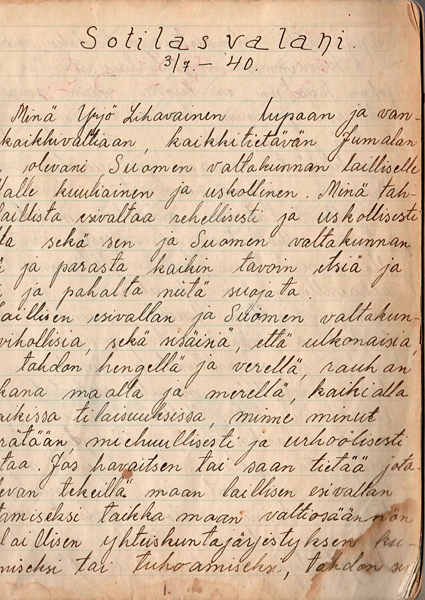 Sotilasvalani.
3/7. - 40.
Minä Yrjö Lihavainen lupaan ja van-
kaikkivaltiaan, kaikkitietävän Jumalan
olevani Suomen valtakunnan lailliselle
lalle kuuliainen ja uskollinen. Minä tah-
aillista esivaltaa rehellisesti ja uskollisesti
la sekä sen ja Suomen valtakunnan
ä ja parasta kaikin tavoin etsiä ja
i ja pahalta niitä suojata.
laillisen esivallan ja Suomen valtakun-
vihollisia, sekä sisäisiä, että ulkonaisia,
tahdon hengellä ja verellä, rauhan
kana maalla ja merellä, kaikialla
aikissa tilaisuuksissa, minne minut
rätään, miehuullisesti ja urhoolisesti
taa. Jos havaitsen tai saan tietää jota-
levan tekeillä maan laillisen esivallan
tamiseksi taikka maan valtiosäännön
laillisen yhteiskuntajärjestyksen ku-
miseksi tai tuhoamiseksi, tahdon
1.